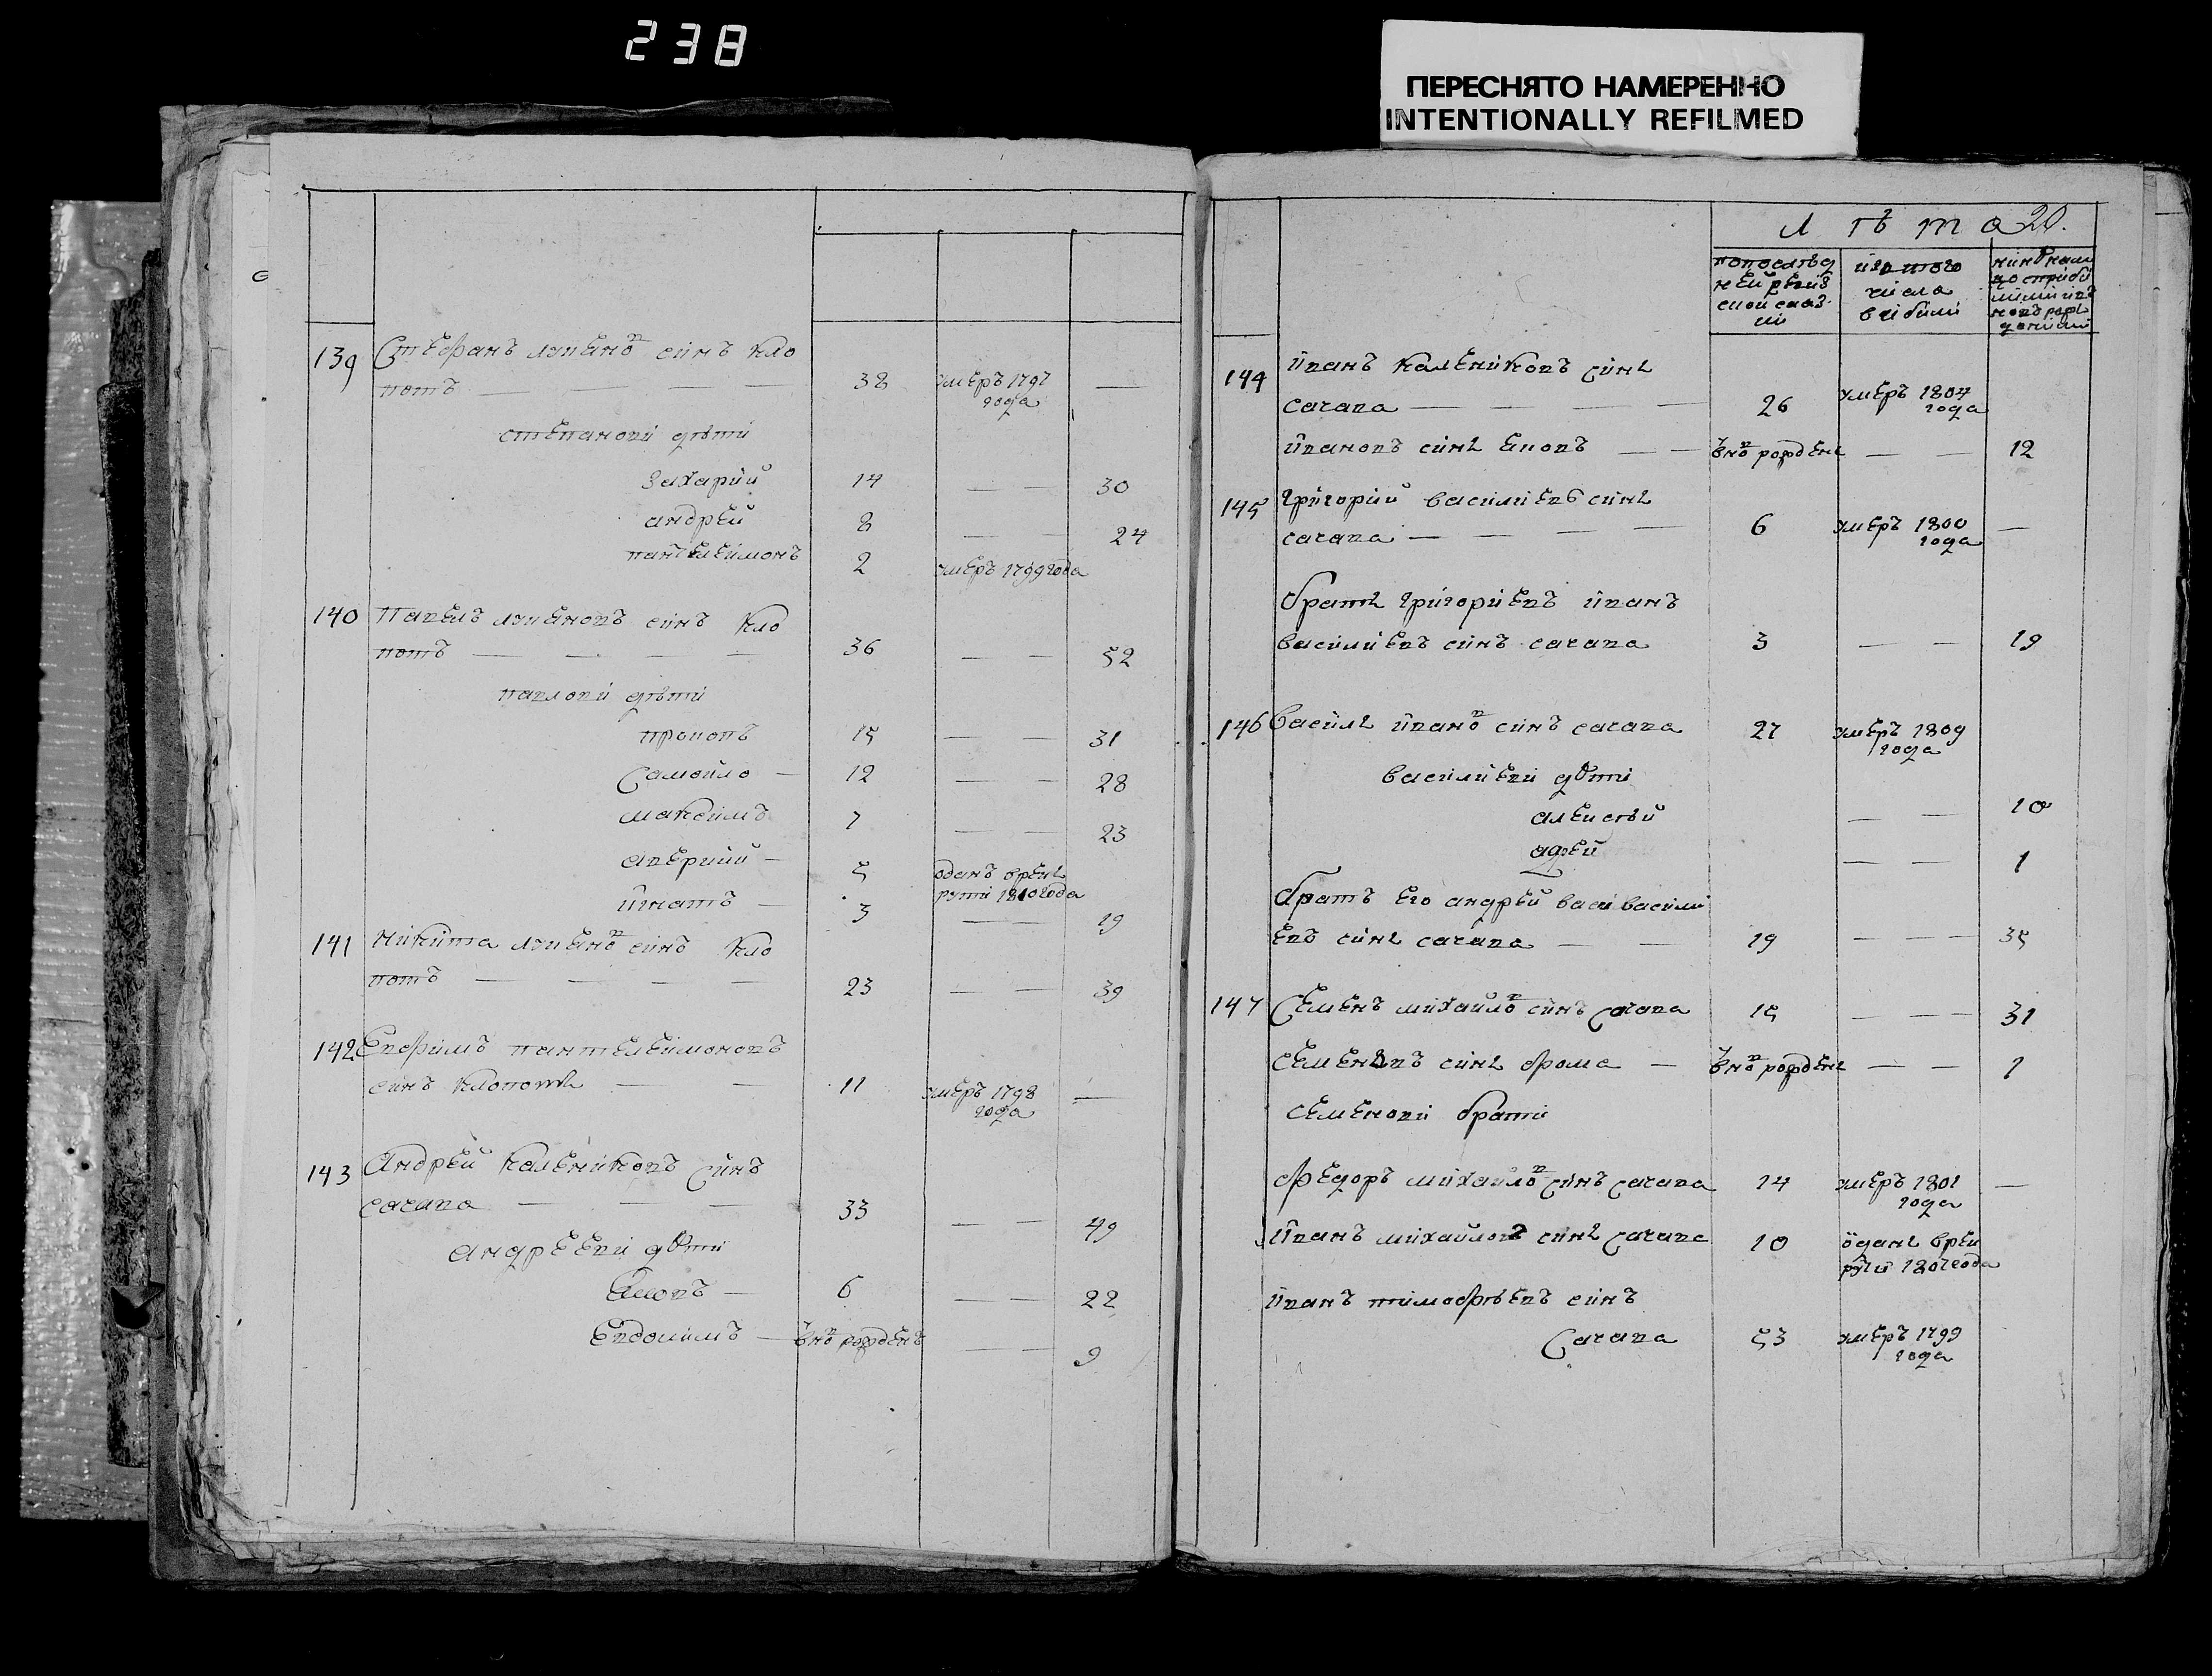 238
ПЕРЕСНЯТО НАМЕРЕННО
INTENTIONALLY REFILMED
139 Стефанъ лукяновъ синъ кло
потъ — — — 38 умеръ 1797 года —
степанови дѣти
Захарій 14 — — 30
андрей 8 — — 24
пантелеймонъ 2 умеръ 1799 года
140 Павелъ лукяновъ синъ Кло
потъ — — — — 36 — — 52
павлови дѣти
прокопъ 15 — — 31
Самойло — 12 — — 28
максимъ 7 — — 23
аверкий — 5 оданъ врек
рути 1810 года
игнатъ — 3 — — 19
141 Никита лукяновъ синъ Кло
потъ — — — — 23 — — 39
142 Евфимъ пантелеймоновъ
синъ клопотъ — — 11 умеръ 1798 года —
143 Андрей Калениковъ синъ
сачава — — — 33 — — 49
андрееви дѣти
Яковъ — 6 — — 22
Евдокимъ — вновъ рожденъ — — 9
Л ѣ т а 20.
попослѣд
ней ревиз
ской сказ
ки
изъ того
числа
вибыли
144 иванъ Калениковъ синъ
сачава — — — — 26 умеръ 1804 года
ивановъ синъ яковъ — — вновъ рожденъ — — 12
145 Григорий василиевъ синъ
сачава — — — — 6 умеръ 1800 года —
братъ григориевъ иванъ
василиевъ синъ сачава 3 — — 19
146 Василь ивановъ синъ сачава 27 умеръ 1809 года
василиеви дѣти
алексѣй — — 10
— — 1
братъ его андрей васи васили
евъ синъ сачава — — 19 — — — 35
147 Семенъ михайловъ синъ сачава 15 — — — 31
семеновъ синъ фома — вновъ рожденъ — — 1
семенови брати
федоръ михайловъ синъ сачава 14 умеръ 1801 года —
иванъ михайловъ синъ сачава 10 оданъ врек
рути 1807 года
иванъ тимофѣевъ синъ
Сачава 53 умеръ 1799 года